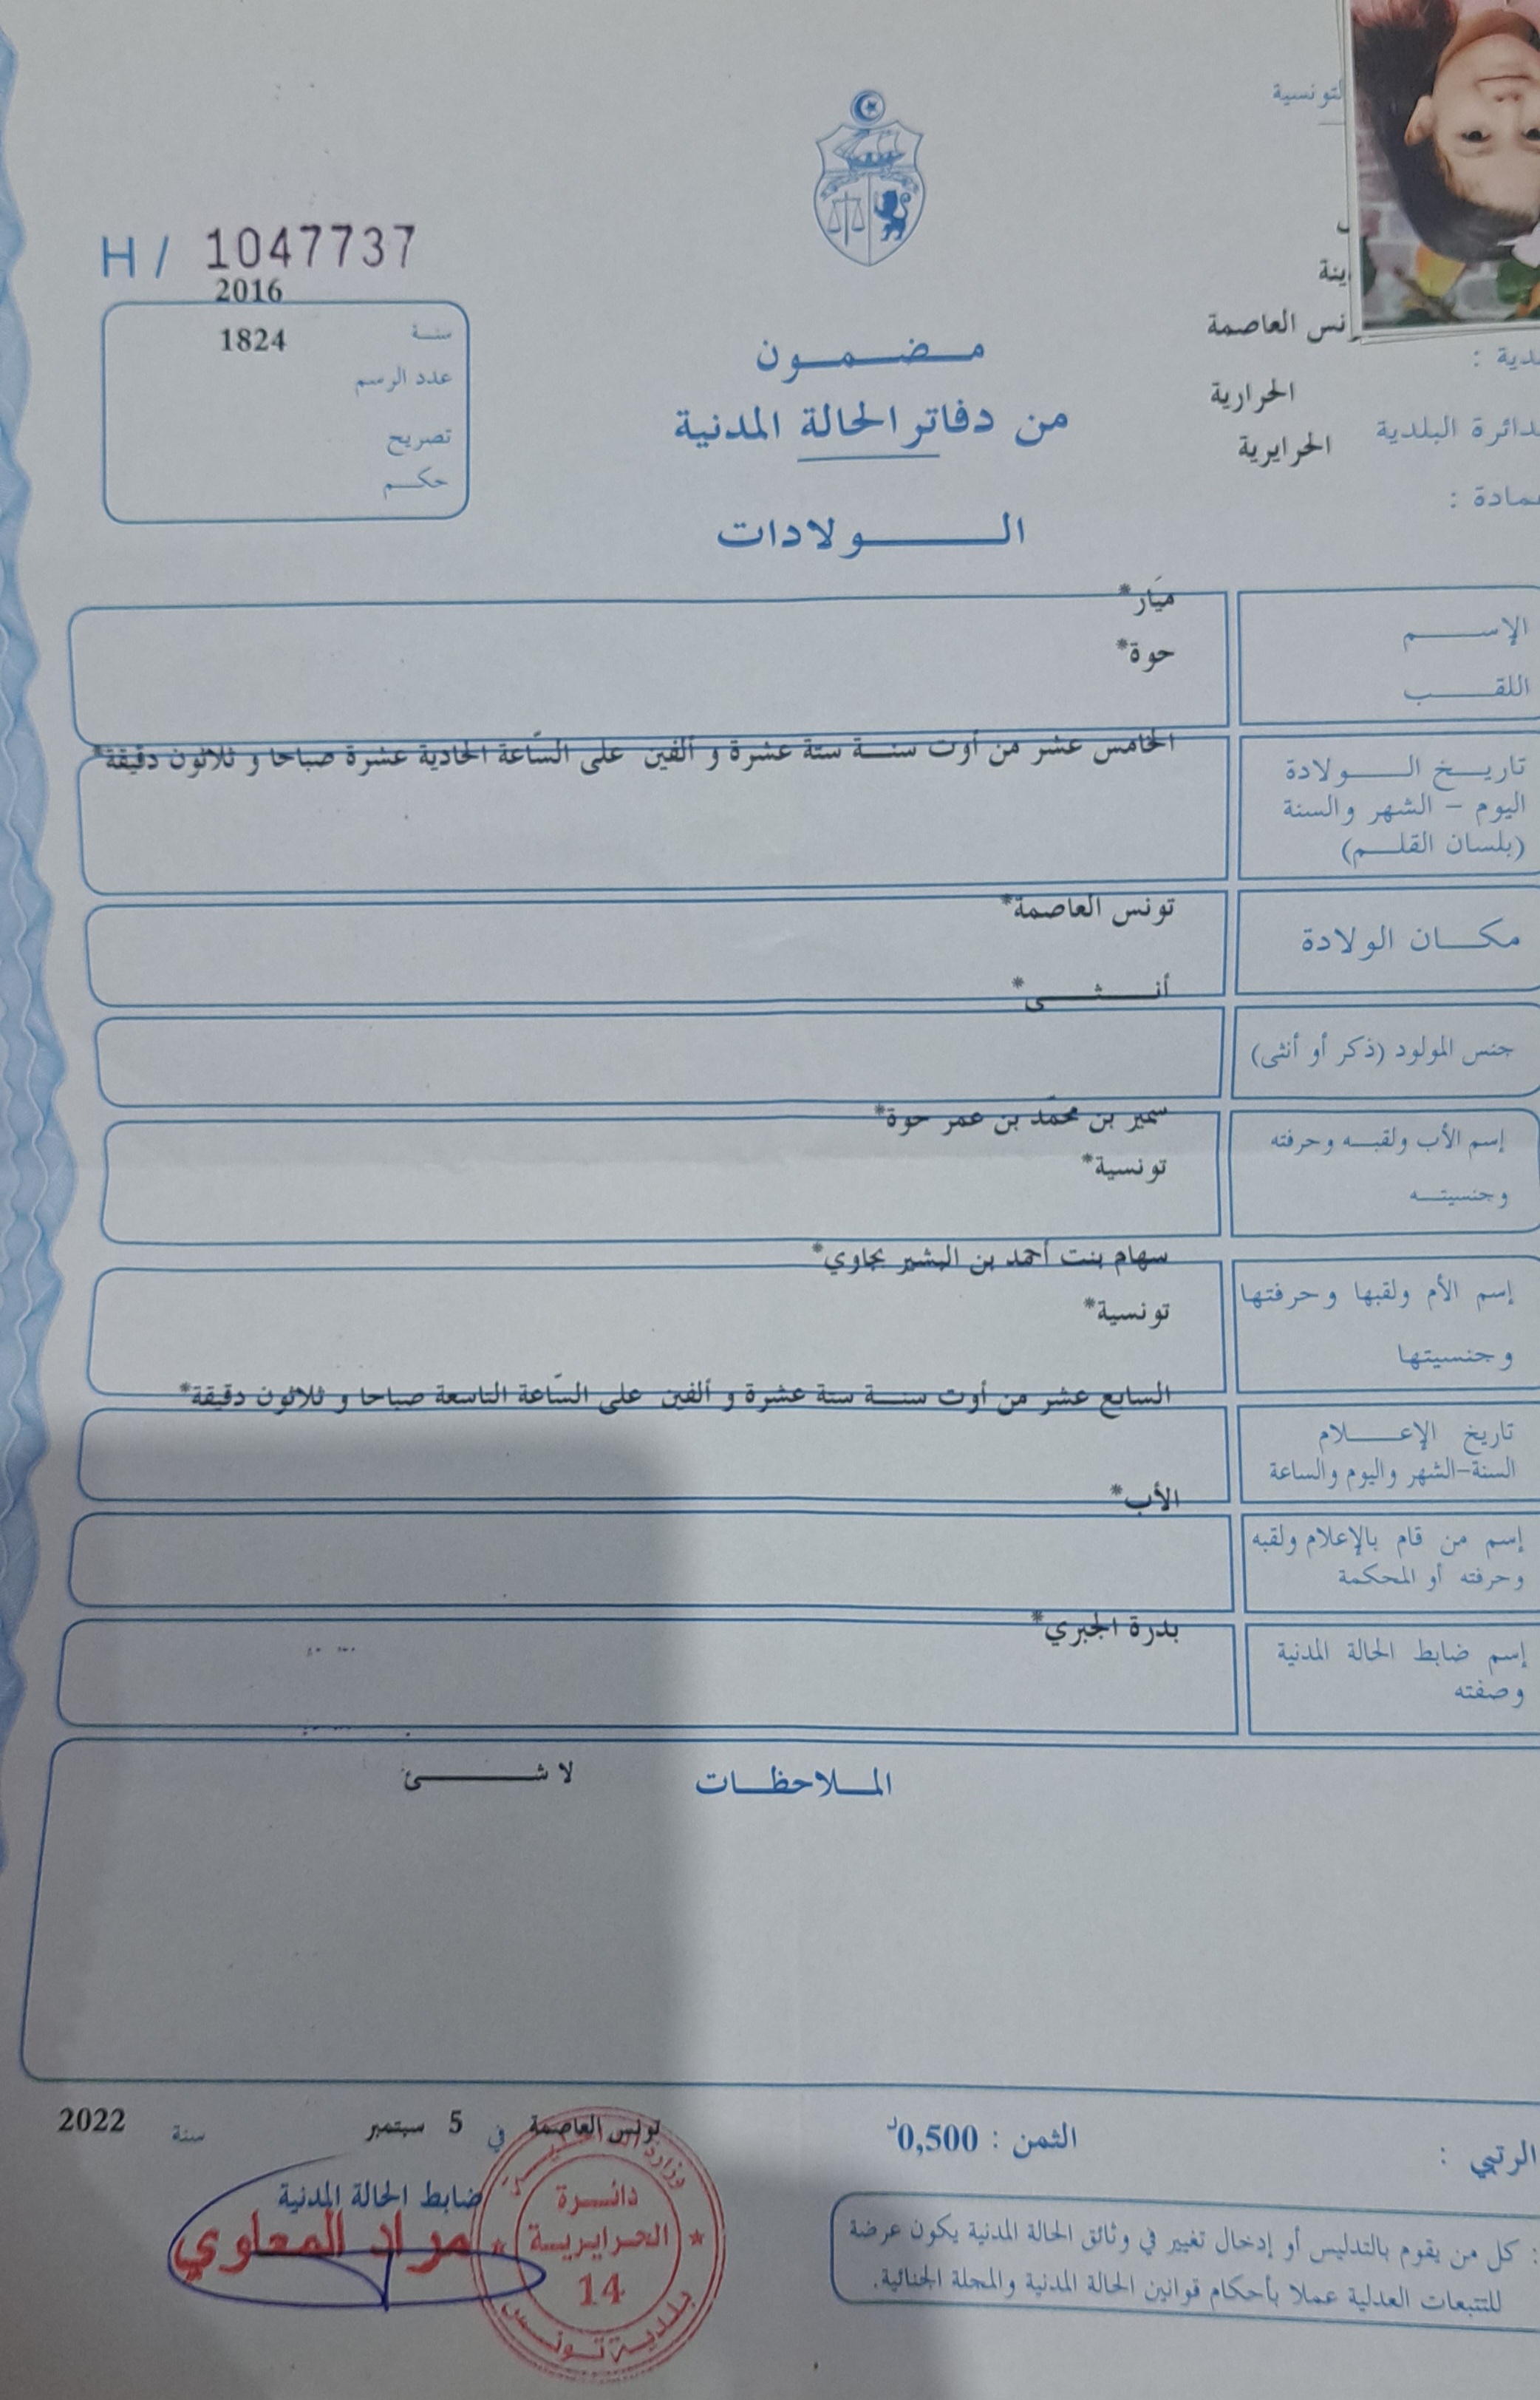 التونسية
H / 1047737
2016
سنة 1824
عدد الرسم
تصريح
حكم
تونس العاصمة
الحرارية
الدائرة البلدية
الحرايرية
مضمون
من دفاتر الحالة المدنية
الولادات
الإسم ميَار*
اللقب حوة*
تاريخ الولادة
اليوم - الشهر والسنة
(بلسان القلم)
الخامس عشر من أوت سنة ستة عشرة و ألفين على السّاعة الحادية عشرة صباحا و ثلاثون دقيقة*
مكان الولادة تونس العاصمة*
جنس المولود (ذكر أو أنثى) أنثى*
إسم الأب ولقبه وحرفته
وجنسيته
سمير بن محمّد بن عمر حوة*
تونسية*
إسم الأم ولقبها وحرفتها
وجنسيتها
سهام بنت أحمد بن البشير بجاوي*
تونسية*
تاريخ الإعلام
السنة-الشهر واليوم والساعة
السابع عشر من أوت سنة ستة عشرة و ألفين على السّاعة التاسعة صباحا و ثلاثون دقيقة*
إسم من قام بالإعلام ولقبه
وحرفته أو المحكمة
الأب*
إسم ضابط الحالة المدنية
وصفته
بدرة الجبري*
الملاحظات لا شئ
تونس العاصمة في 5 سبتمبر سنة 2022
الثمن : 0,500د
ضابط الحالة المدنية
مراد المعلوي
دائرة
الحرايرية
14
بلدية تونس
كل من يقوم بالتدليس أو إدخال تغيير في وثائق الحالة المدنية يكون عرضة
للتتبعات العدلية عملا بأحكام قوانين الحالة المدنية والمجلة الجنائية.